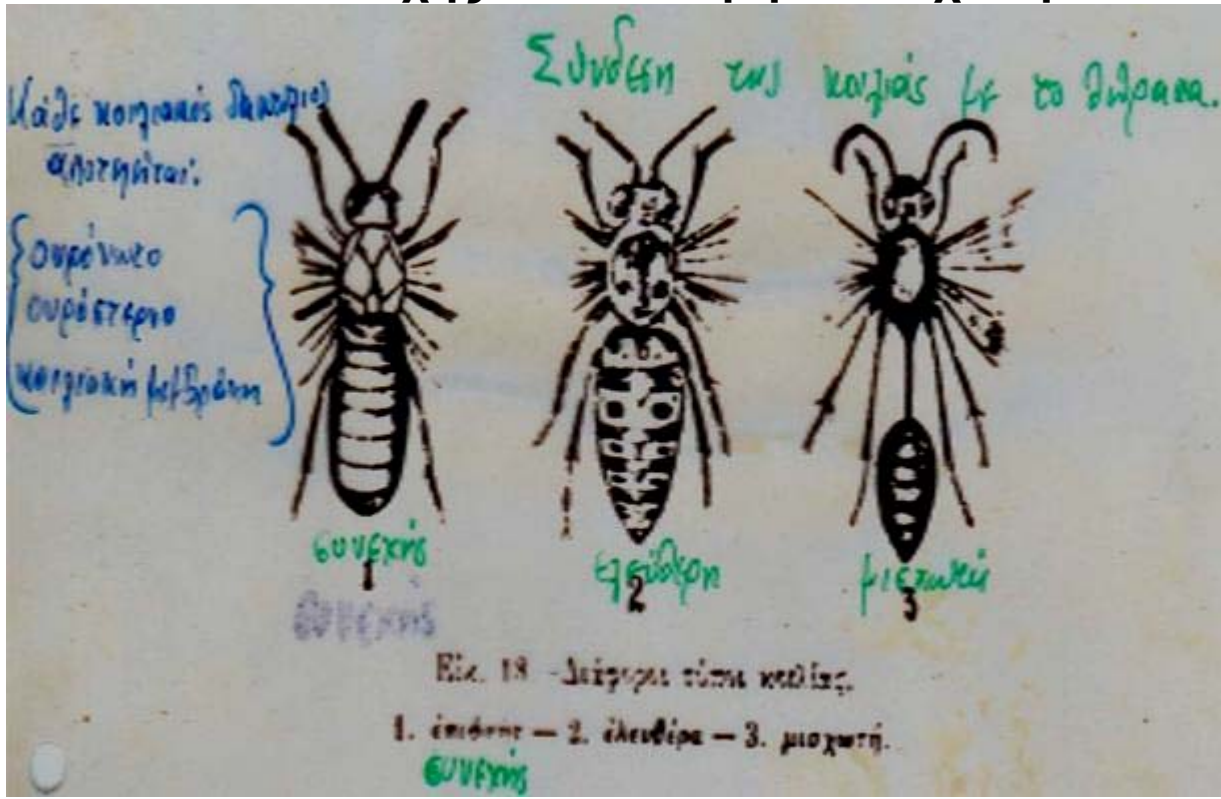 Σύνδεση της κοιλιάς με το θώρακα.
Κάθε κοιλιακός δακτύλιος
αποτελείται:
ουρόνωτο
ουρόστερνο
κοιλιακή μεμβράνη
συνεχής
ελεύθερη
μισχωτή
1
2
3
συνεχής
Εἰκ. 18 - Διάφοροι τύποι κοιλίας.
1. ἐπιφυής — 2. ἐλευθέρα — 3. μισχωτή.
συνεχής